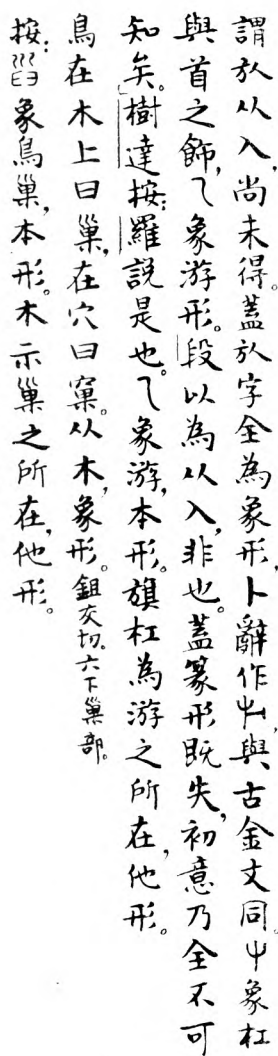 謂㫃从入,尚未得。蓋㫃字全為象形,卜辭作,與古金文同。屮象杠
與首之飾,乀象游形。段以為从入,非也。蓋篆形既失,初意乃全不可
知矣。樹達按:羅說是也。乀象游,本形。旗杠為游之所在,他形。
鳥在木上曰巢,在穴曰窠。从木,象形。鉏交切。六下巢部。
按:𦥑象鳥巢,本形。木示巢之所在,他形。